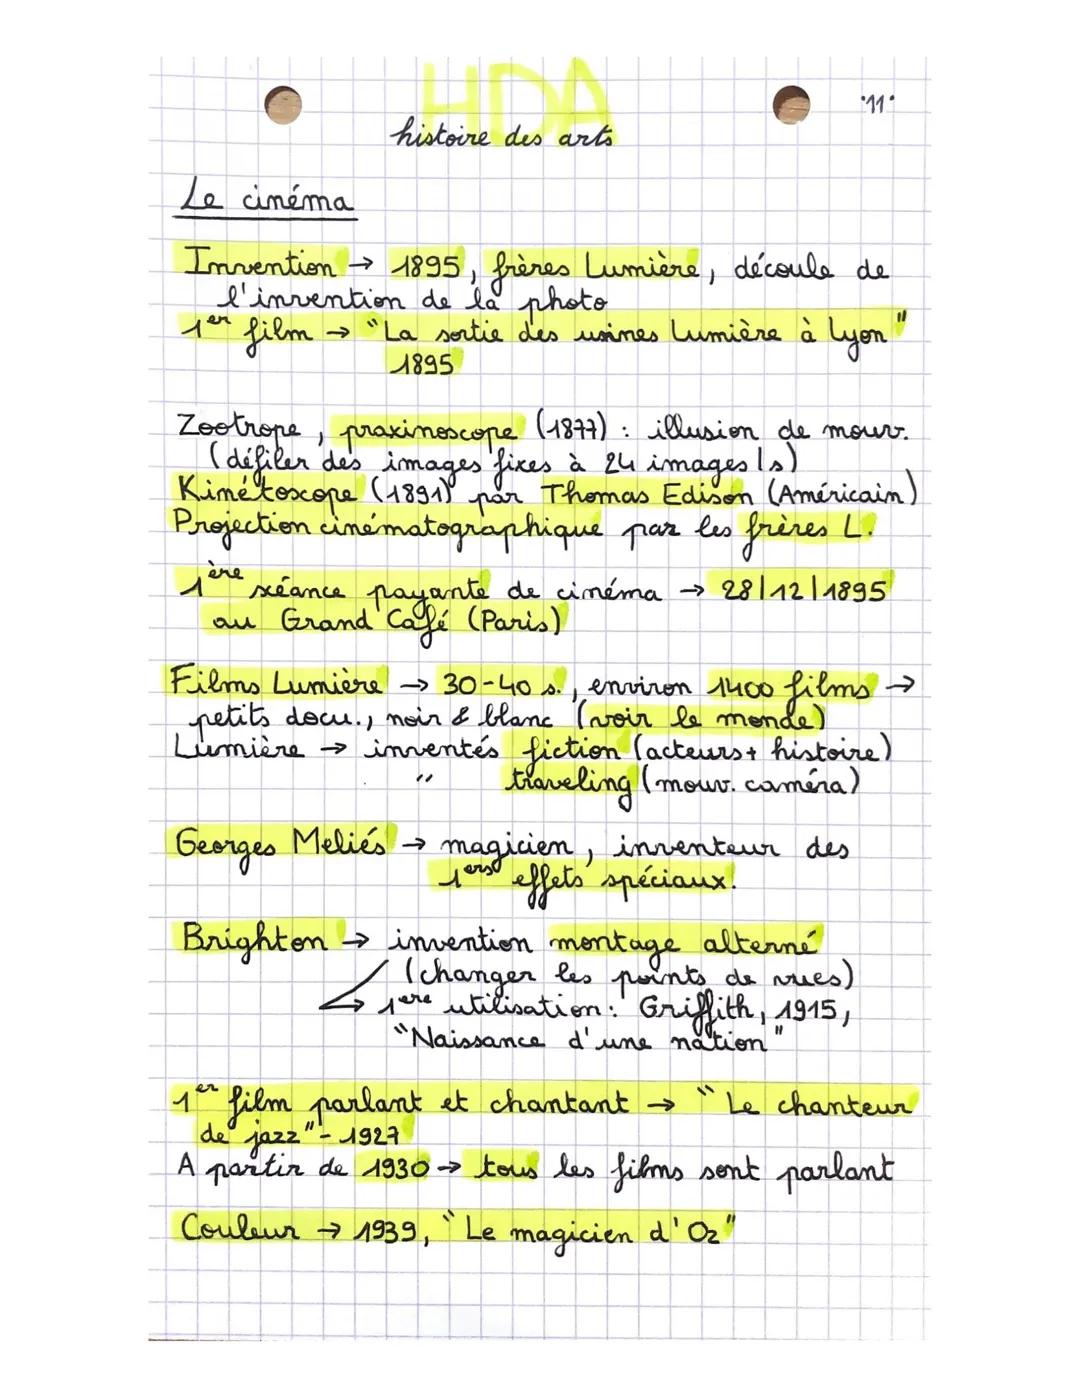 HDA
histoire des arts
·11·
Le cinéma
Invention → 1895, frères Lumière, découle de
l'invention de la photo
1er film → "La sortie des usines Lumière à Lyon"
1895
Zootrope, praxinoscope (1877) : illusion de mouv.
(défiler des images fixes à 24 images/s)
Kinétoscope (1891) par Thomas Edison (Américain)
Projection cinématographique par les frères L.
1ère séance payante de cinéma → 28/12/1895
au Grand Café (Paris)
Films Lumière → 30-40 s., environ 1400 films →
petits docu., noir & blanc (voir le monde)
Lumière → inventés fiction (acteurs + histoire)
" traveling (mouv. caméra)
Georges Meliés → magicien, inventeur des
1ers effets spéciaux.
Brighton → invention montage alterné
(changer les points de vues)
→ 1ere utilisation : Griffith, 1915,
"Naissance d'une nation"
1er film parlant et chantant → "Le chanteur
de jazz" - 1927
A partir de 1930 → tous les films sont parlant
Couleur → 1939, "Le magicien d'Oz"